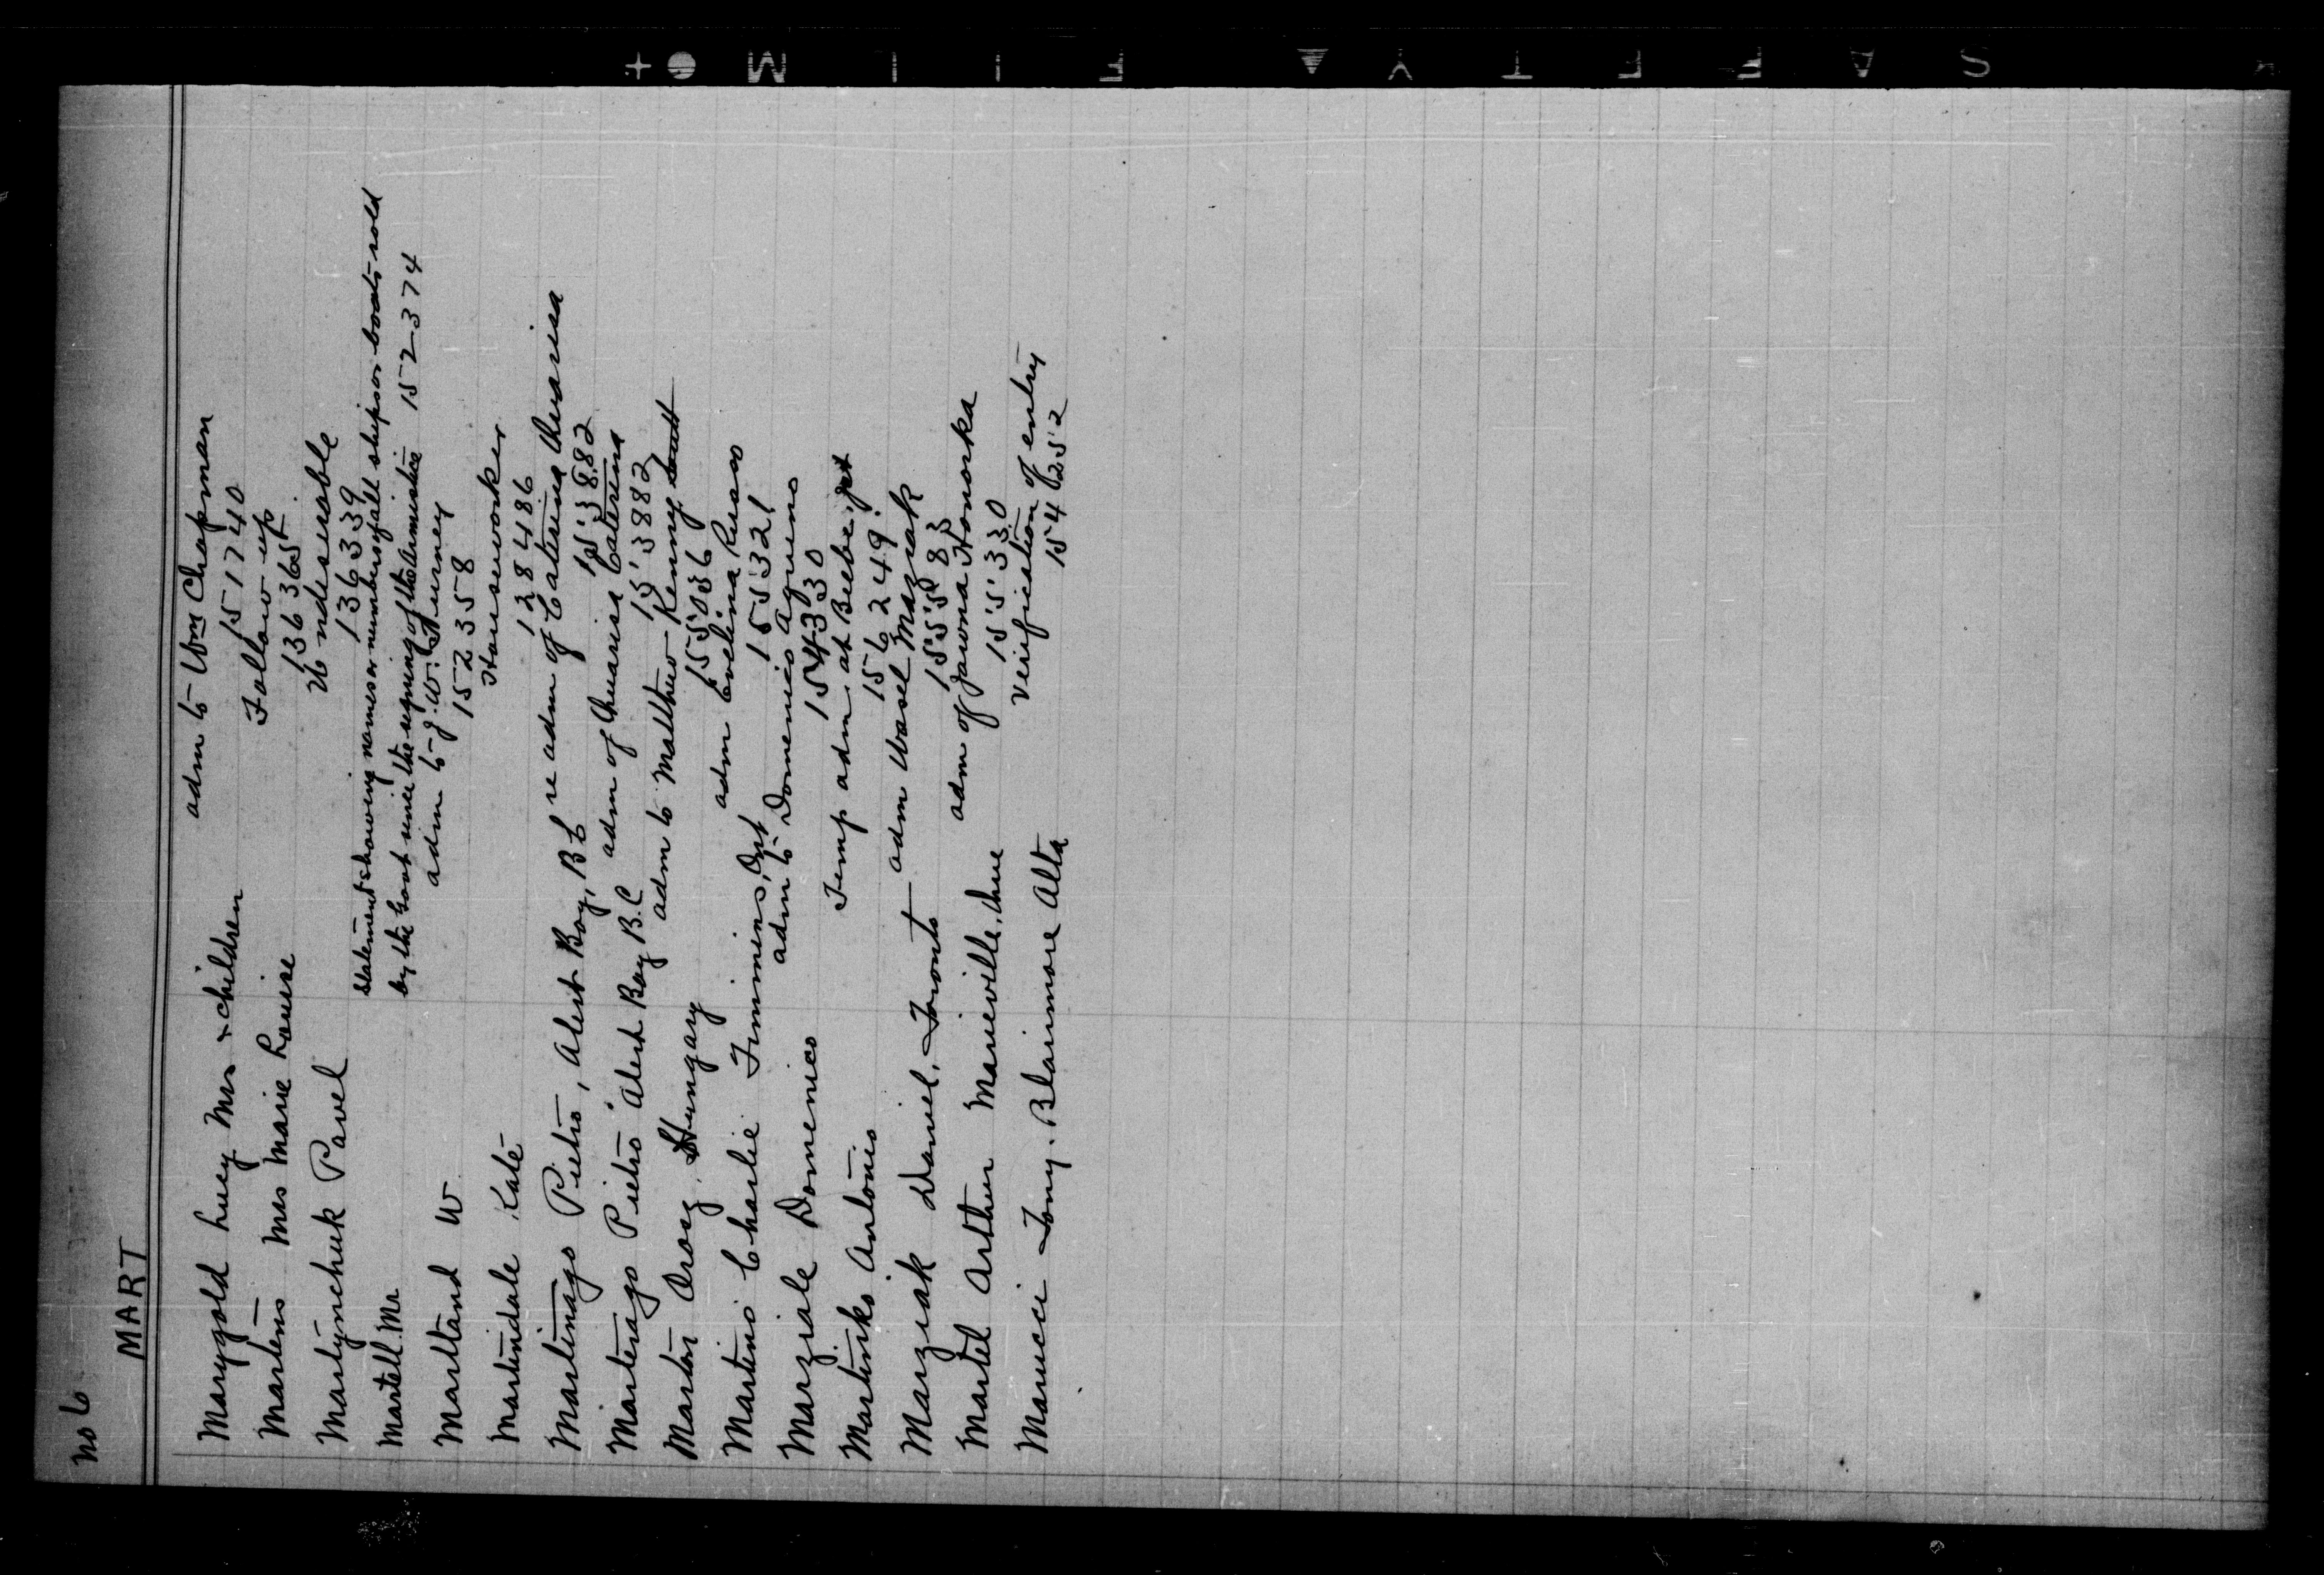 No 6
MART
Marygold Lucy Mrs & children adm to Wm Chapman
151740
Martens Mrs Marie Louise Follow up
136365
Martynchuk Pavel Undesirable
136339
Martell Mr statement showing names or numbers of all ships or boats sold
by the Govt since the signing of the Armistice 152374
Martland W adm to J. W. Furney
152358
Martindale Kate Houseworker
128486
Martinago Pietro, Alert Bay, BC re adm of Caterina
153882
Martenago Pietro Alert Bay B.C adm of Caterina
153882
Marton Orosz, Hungary adm to Matthew Kenny
155036
Martino Charlie Timmins, Ont adm Evelina Russo
155321
Marziale Domenico adm to Domenico Aquino
154330
Martinko Antonio Temp adm at Beebe, Jct
156249
Marziak Daniel, Toronto adm Wasel Maziak
155583
Martel Arthur Marieville, Que adm of Jawona Homorka
155330
Marucci Tony. Blairmore Alta verification of entry
154252
S A F E T Y F I L M